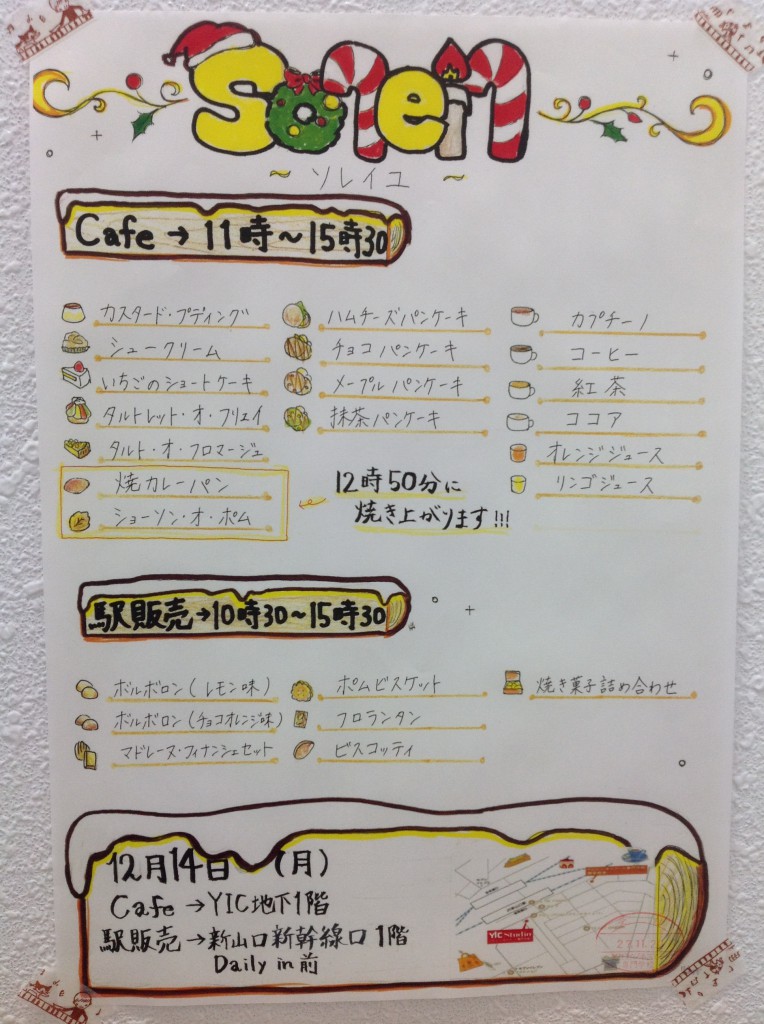 Soleil
~ ソレイユ ~
Cafe → 11時~15時30
カスタード・プディング
シュークリーム
いちごのショートケーキ
タルトレット・オ・フリュイ
タルト・オ・フロマージュ
焼カレーパン
ショーソン・オ・ポム
ハムチーズパンケーキ
チョコパンケーキ
メープルパンケーキ
抹茶パンケーキ
12時50分に
焼き上がります!!!
カプチーノ
コーヒー
紅茶
ココア
オレンジジュース
リンゴジュース
駅販売→10時30~15時30
ボルボロン(レモン味)
ボルボロン(チョコオレンジ味)
マドレーヌ・フィナンシェセット
ポムビスケット
フロランタン
ビスコッティ
焼き菓子詰め合わせ
12月14日 (月)
Cafe →YIC地下1階
駅販売→新山口新幹線口1階
Daily in前
YIC Studio